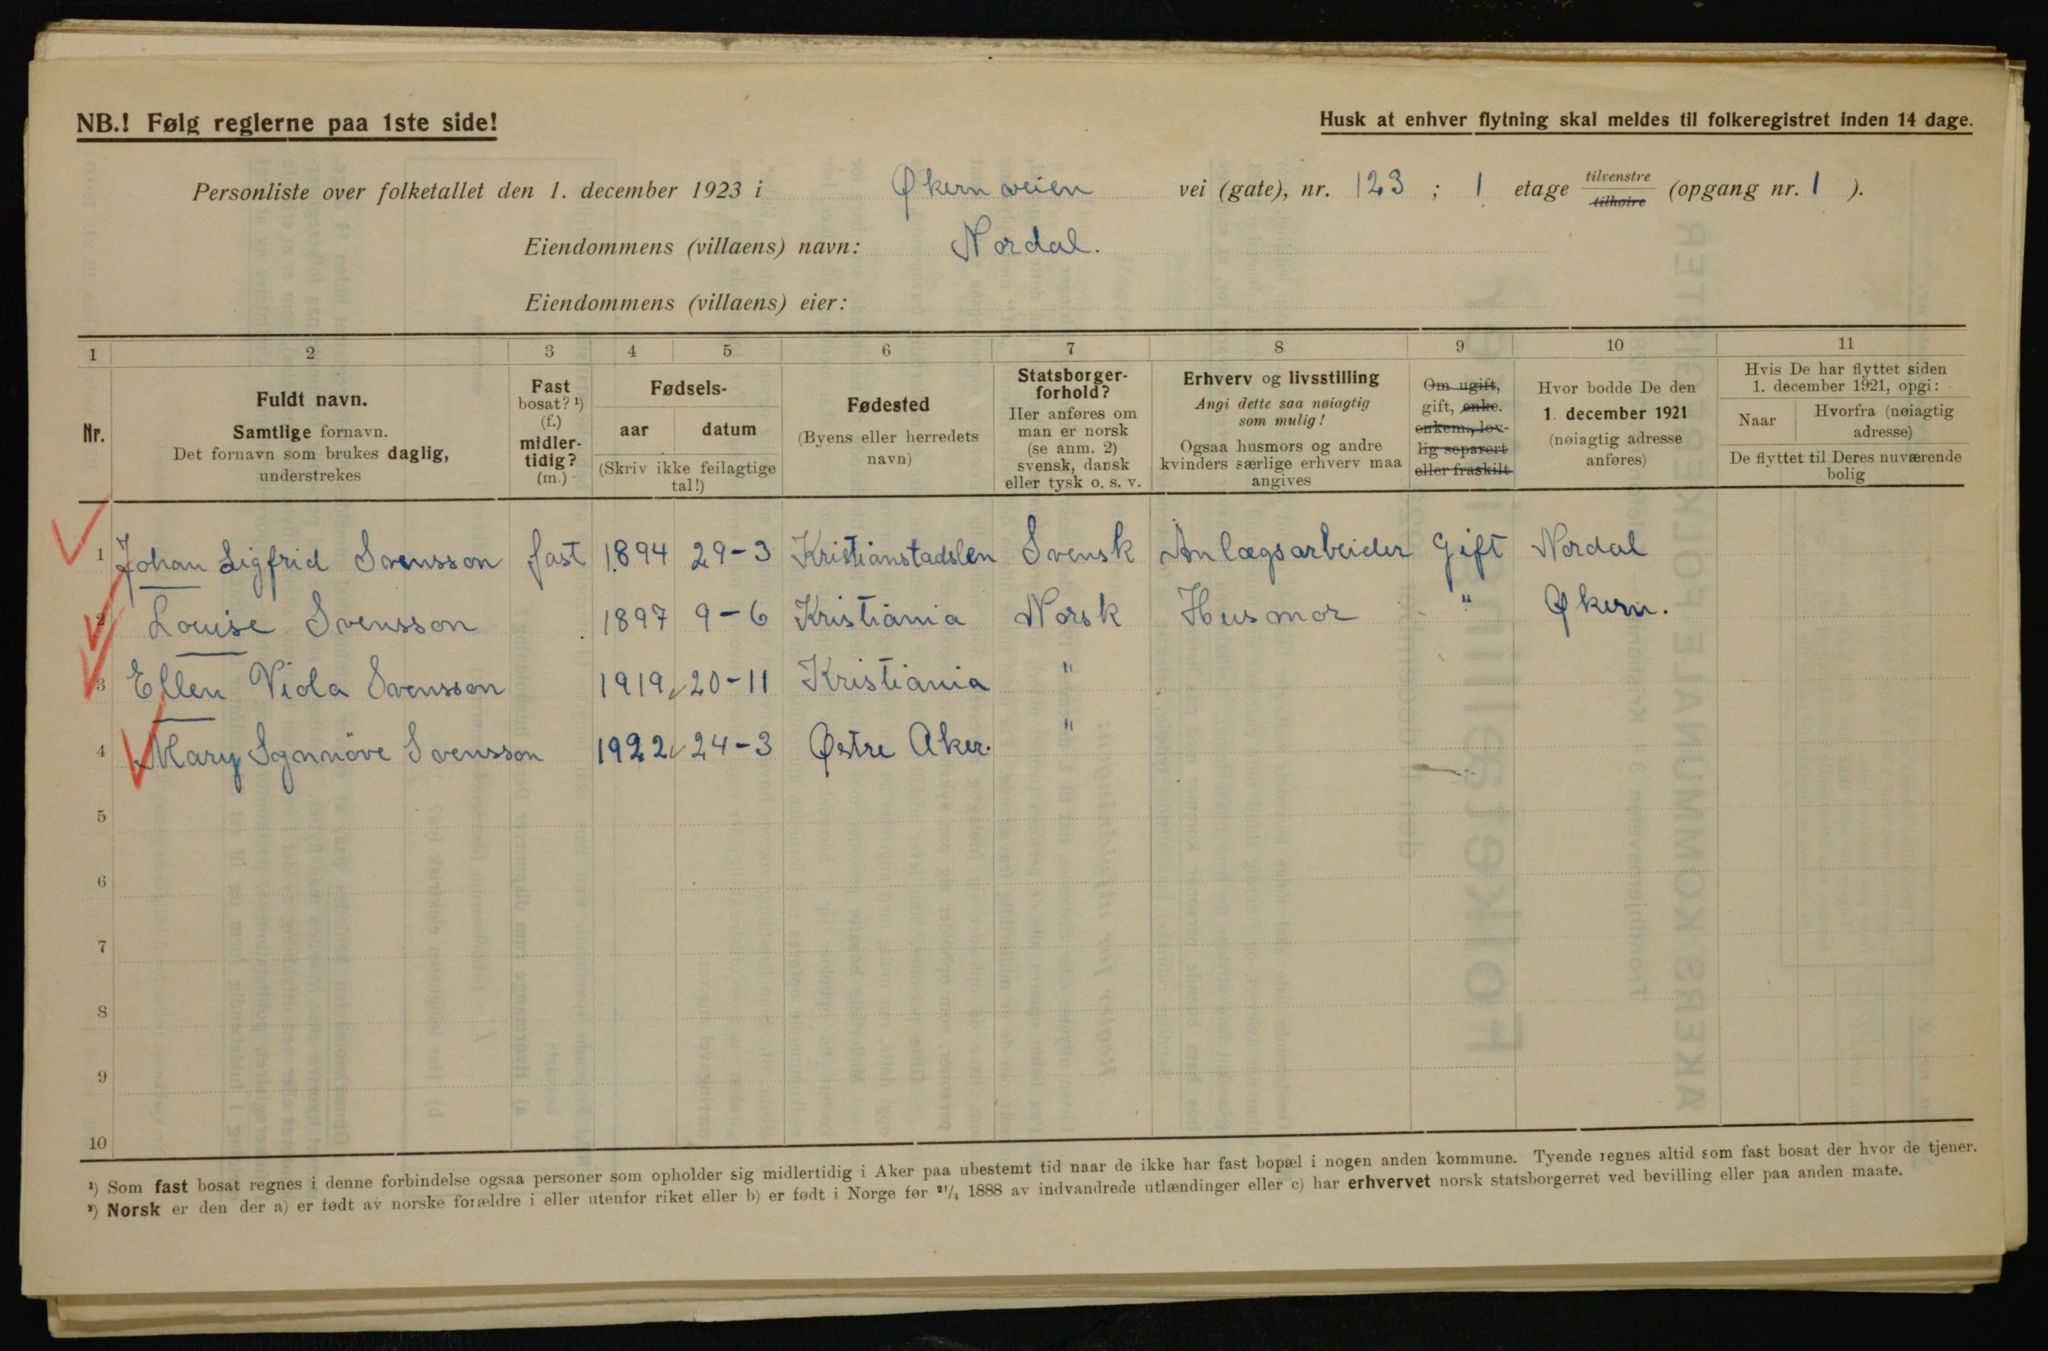 NB.! Følg reglerne paa 1ste side!
Husk at enhver flytning skal meldes til folkeregistret inden 14 dage.
Personliste over folketallet den 1. december 1923 i Økernveien vei (gate), nr. 123 ; 1 etage tilvenstre tilhøire (opgang nr. 1 ).
Eiendommens (villaens) navn: Nordal.
Eiendommens (villaens) eier:
1 2 3 4 5 6 7 8 9 10 11
Nr.
Fuldt navn.
Samtlige fornavn.
Det fornavn som brukes daglig,
understrekes
Fast
bosat? ¹)
(f.)
midler-
tidig?
(m.)
Fødsels-
aar datum
(Skriv ikke feilagtige
tal!)
Fødested
(Byens eller herredets
navn)
Statsborger-
forhold?
Her anføres om
man er norsk
(se anm. 2)
svensk, dansk
eller tysk o. s. v.
Erhverv og livsstilling
Angi dette saa nøiagtig
som mulig!
Ogsaa husmors og andre
kvinders særlige erhverv maa
angives
Om ugift,
gift, enke.
enkem., lov-
lig separert
eller fraskilt
Hvor bodde De den
1. december 1921
(nøiagtig adresse
anføres)
Hvis De har flyttet siden
1. december 1921, opgi:
Naar
Hvorfra (nøiagtig
adresse)
De flyttet til Deres nuværende
bolig
1 Johan Sigfrid Svensson fast 1894 29-3 Kristianstadslen Svensk Anlægsarbeider Gift Nordal
2 Louise Svensson 1897 9-6 Kristiania Norsk Husmor " Økern.
3 Ellen Viola Svensson 1919 20-11 Kristiania "
4 Mary Synnöve Svensson 1922 24-3 Østre Aker. "
5
6
7
8
9
10
¹) Som fast bosat regnes i denne forbindelse ogsaa personer som opholder sig midlertidig i Aker paa ubestemt tid naar de ikke har fast bopæl i nogen anden kommune. Tyende regnes altid som fast bosat der hvor de tjener.
²) Norsk er den der a) er født av norske forældre i eller utenfor riket eller b) er født i Norge før ²¹/₄ 1888 av indvandrede utlændinger eller c) har erhvervet norsk statsborgerret ved bevilling eller paa anden maate.